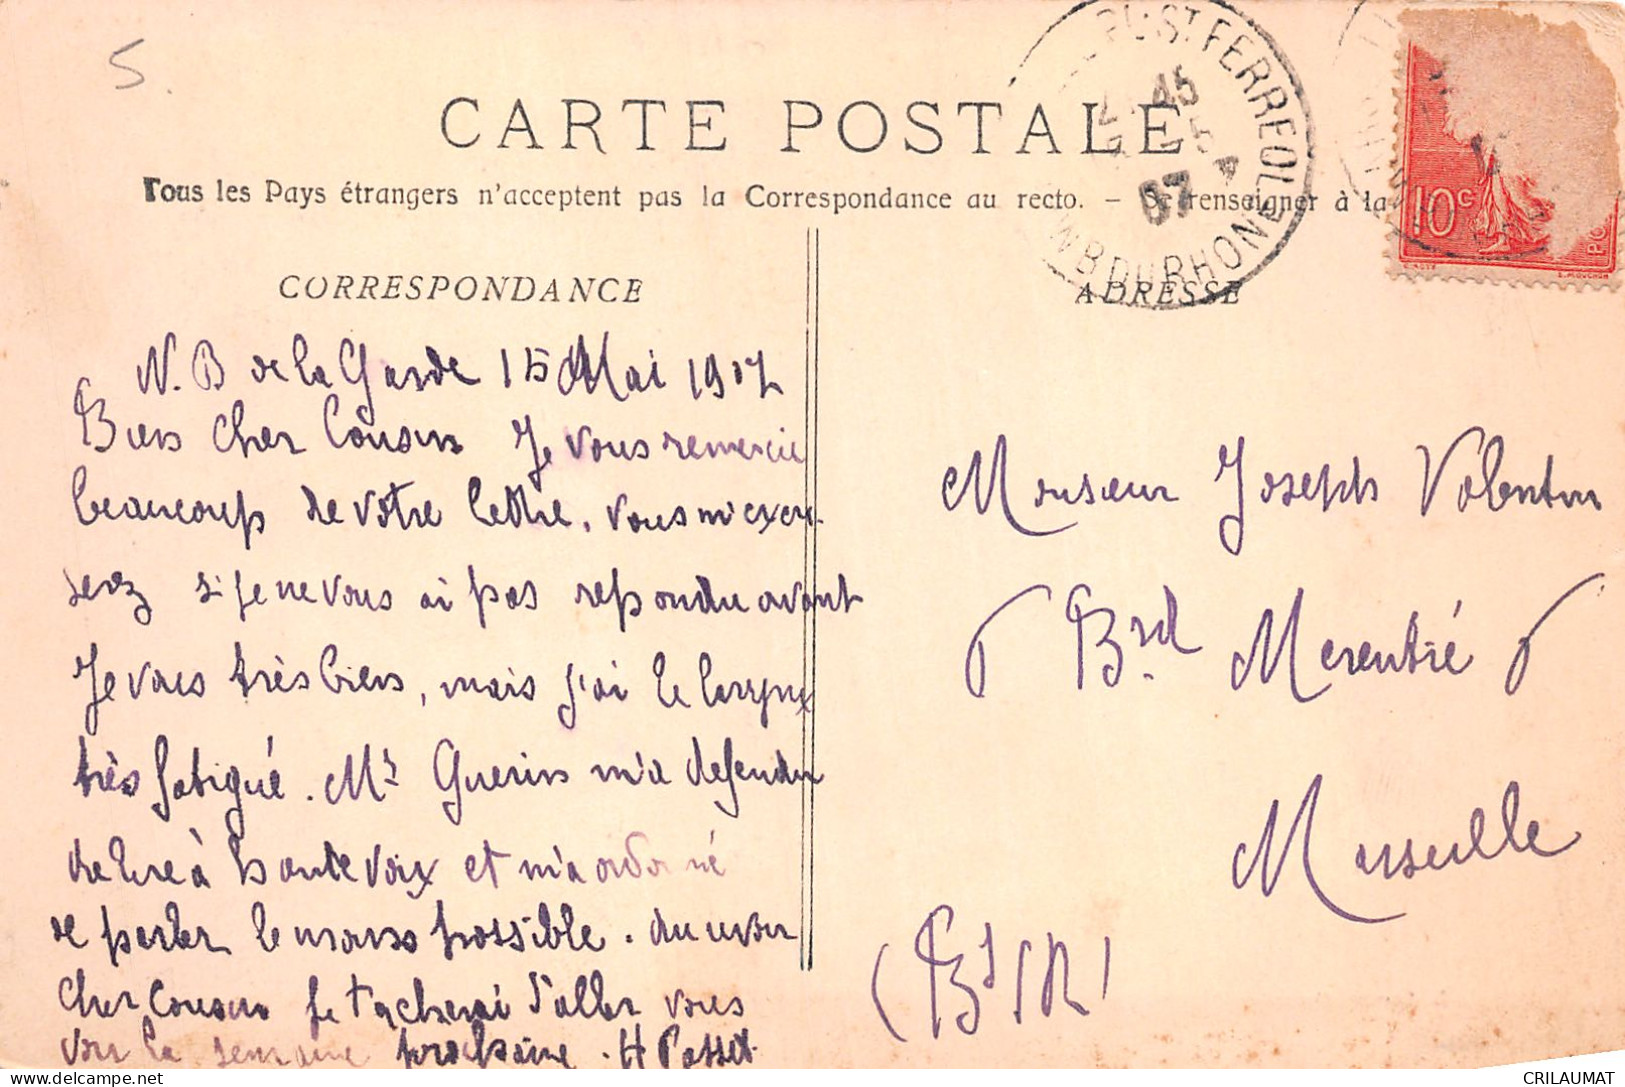 5.
CARTE POSTALE
Tous les Pays étrangers n'acceptent pas la Correspondance au recto. – Se renseigner à la
ST FERREOL
45
15
07
B DU RHONE
10c
E. MOUCHON
CORRESPONDANCE
N. B de la Garde 15 Mai 1907
Bien cher Cousin Je vous remercie
beaucoup de votre lettre, vous m'excu-
serez si je ne vous ai pas repondu avant
Je vais très bien, mais j'ai le larynx
très fatigué. Mr Guerin m'a defendu
de lire à haute voix et m'a ordonné
de parler le moins possible. Au revoir
cher Cousin je tacherai d'aller vous
voir la semaine prochaine. H Posset
ADRESSE
Monsieur Joseph Valentin
6 Brd Merentié 6
Marseille
(Bs / R)
CRILAUMAT